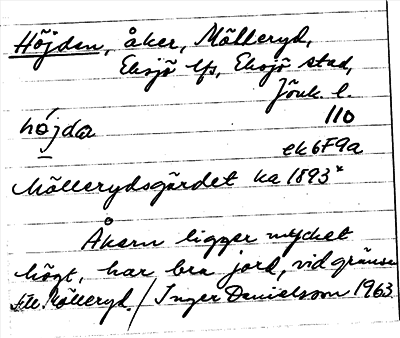 Höjden, åker, Mölleryd,
Eksjö lfs, Eksjö stad,
Jönk. l.
110
höjda
ek6F9a
Möllerydsgärdet ka 1893*
Åkern ligger mycket
högt, har bra jord, vid gränsen
till Mölleryd. / Inger Danielsson 1963